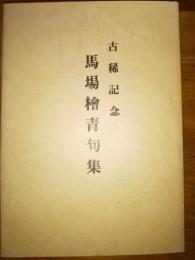 古稀記念
馬場檜青句集